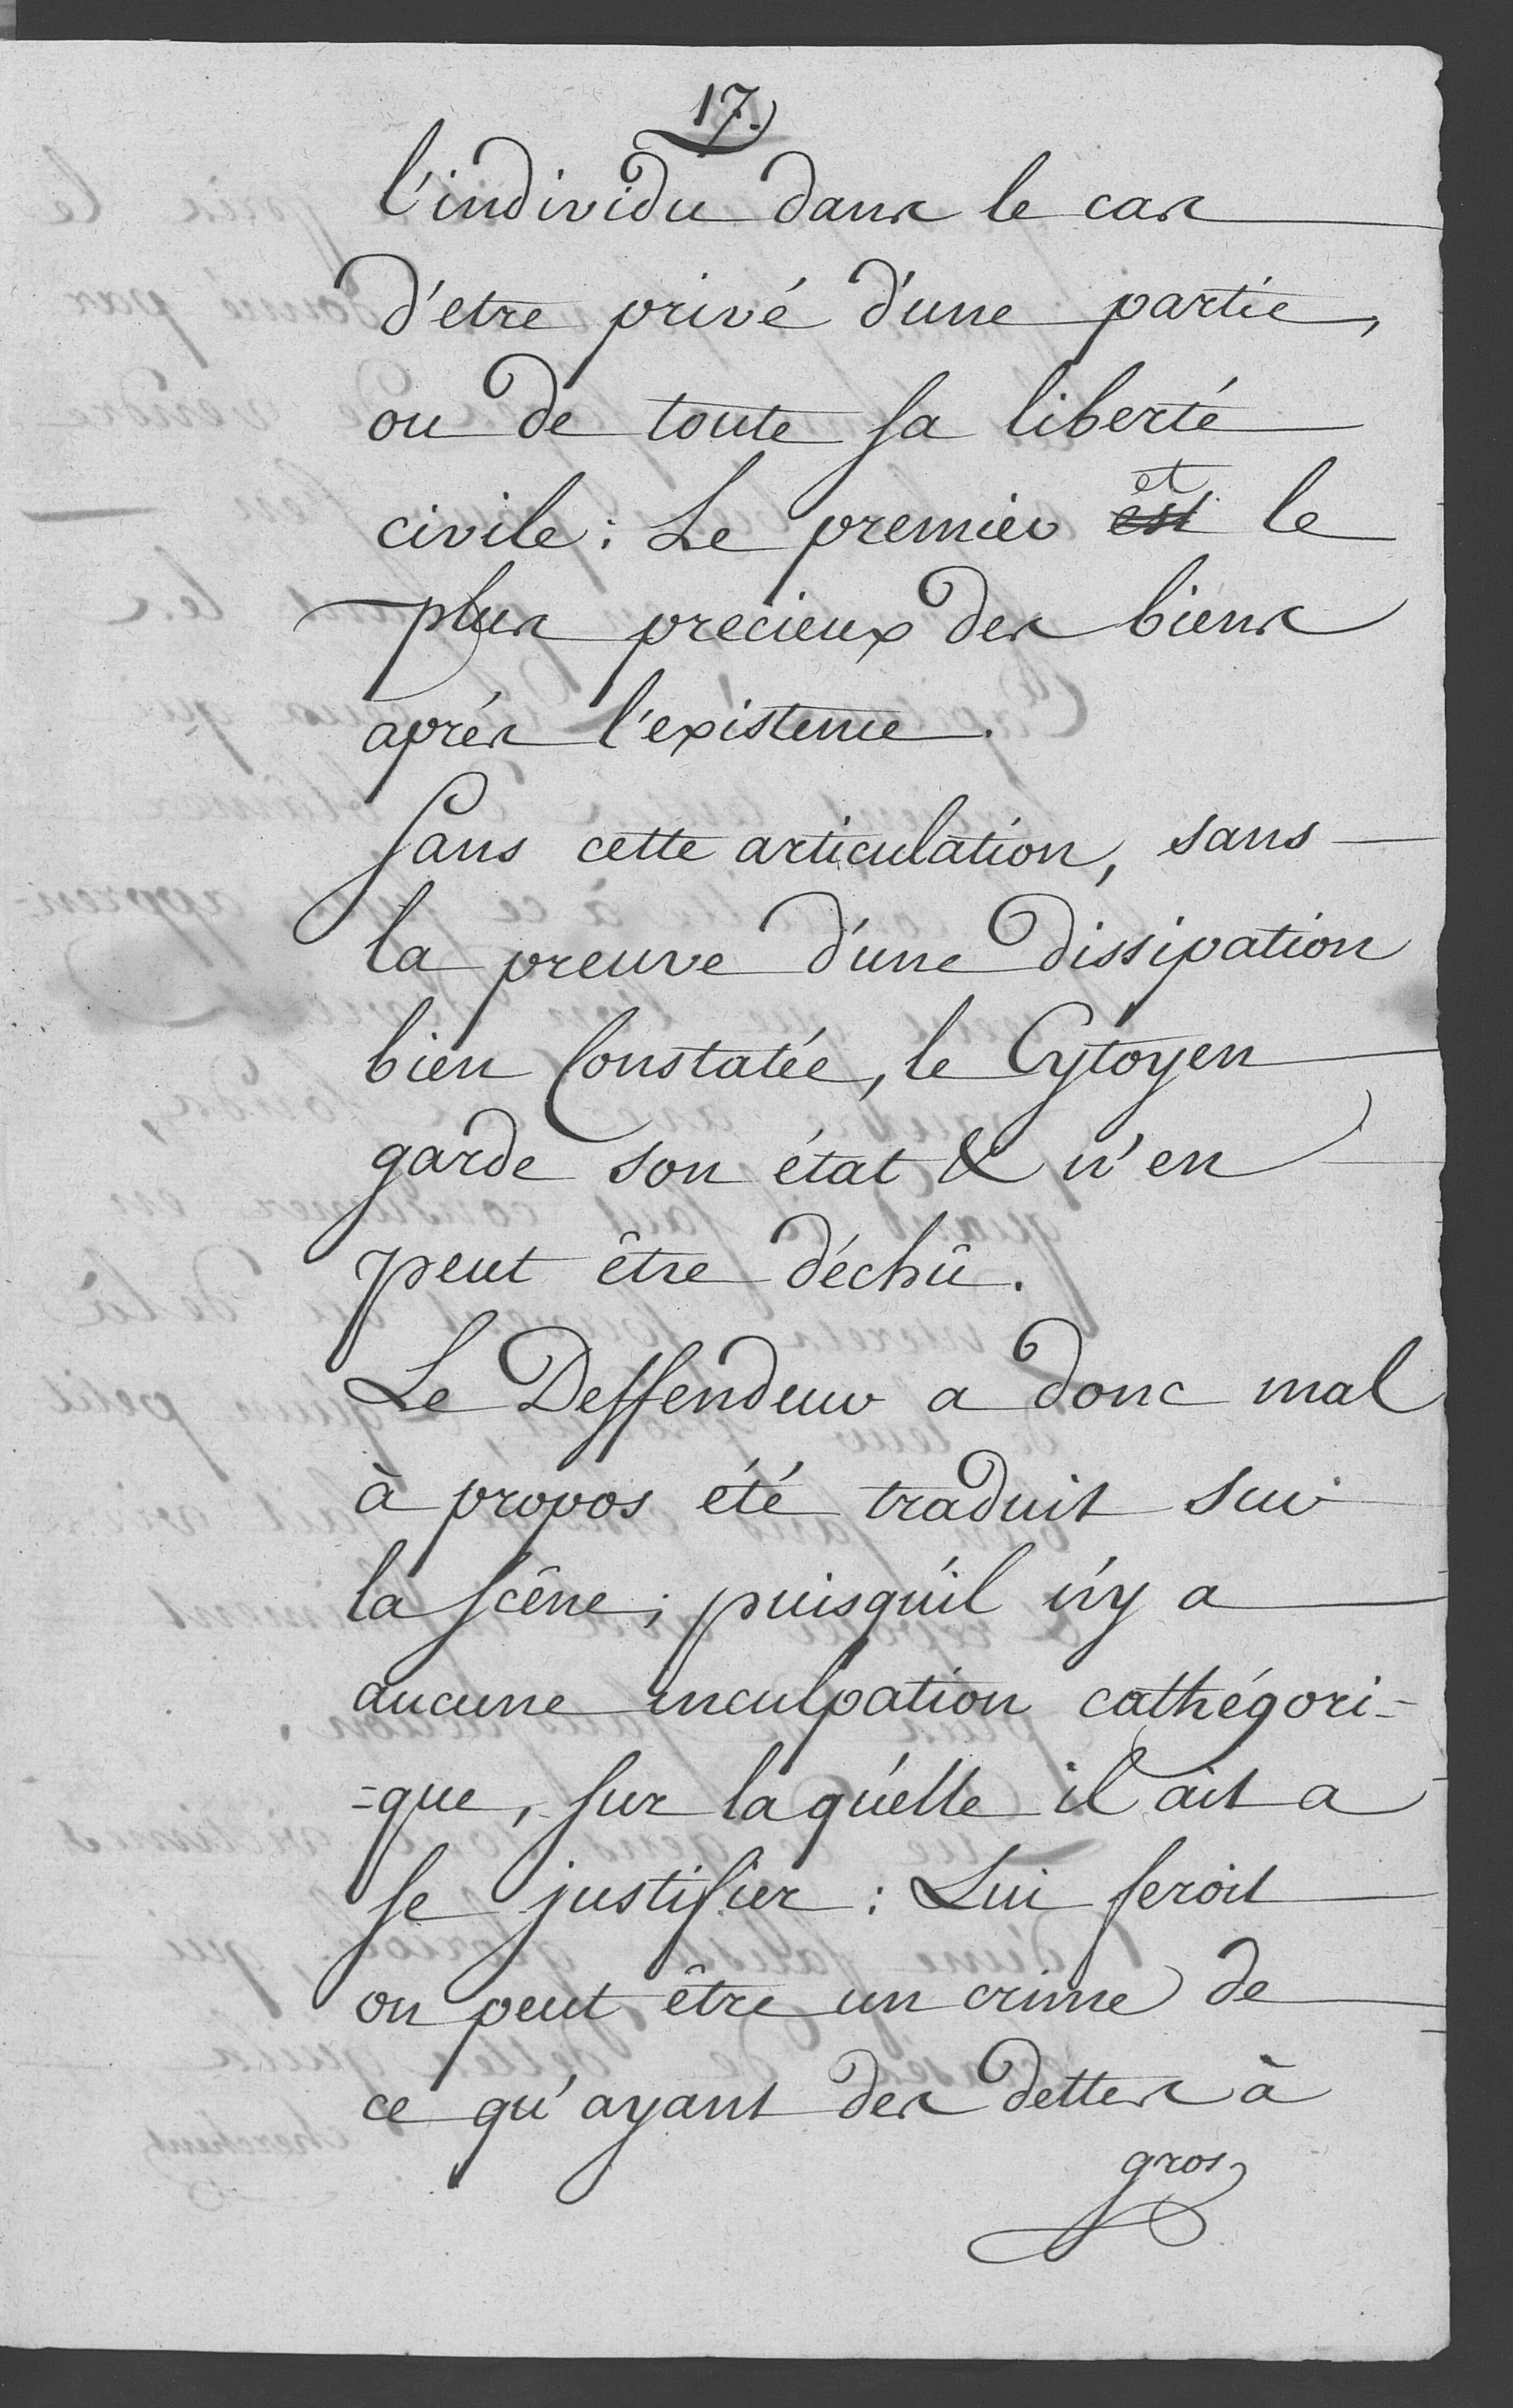 17.
l'individu dans le cas
d'etre privé d'une partie,
ou de toute sa liberté
civile : Le premier ~~est~~ et le
plus precieux des biens
aprés l'existence.
Sans cette articulation, sans
la preuve d'une dissipation
bien Constatée, le Cytoyen
garde son état & n'en
peut être déchû.
Le Deffendeur a donc mal
à propos été traduit sur
la scêne ; puisqu'il n'y a
aucune inculpation cathégori-
-que, sur laquelle il ait a
se justifier : Lui feroit
on peut être un crime de
ce qu'ayant des dettes à
gros